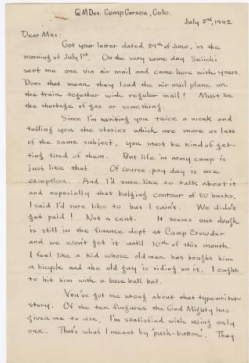 QMDet. Camp Carson, Colo.
July 2nd, 1942
Dear Mas:
Got your letter dated 29th of June, in the
morning of July 1st. On the very same day Seiichi
sent me one via air mail and came here with yours.
Does that mean they load the air mail plane on
the train together with regular mail? Must be
the shortage of gas or something.
Since I'm writing you twice a week and
telling you the stories which are more or less
of the same subject, you must be kind of get-
ting tired of them. But life in army camp is
just like that. Of course, pay day is one
exception. And I'd sure like to talk about it
and especially that bulging contour of 50 bucks,
I said I'd sure like to but I can't. We didn't
get paid! Not a cent. It seems our dough
is still in the finance dept at Camp Crowder
and we won't get it until 10th of this month.
I feel like a kid whose old man has bought him
a bicycle and the old guy is riding on it. I ought
to hit him with a base ball bat.
You've got me wrong about that typewriter
story. Of the ten fingures the God Mighty has
given me to use, I'm statisfied with using only
one. That's what I meant by "push-button". They